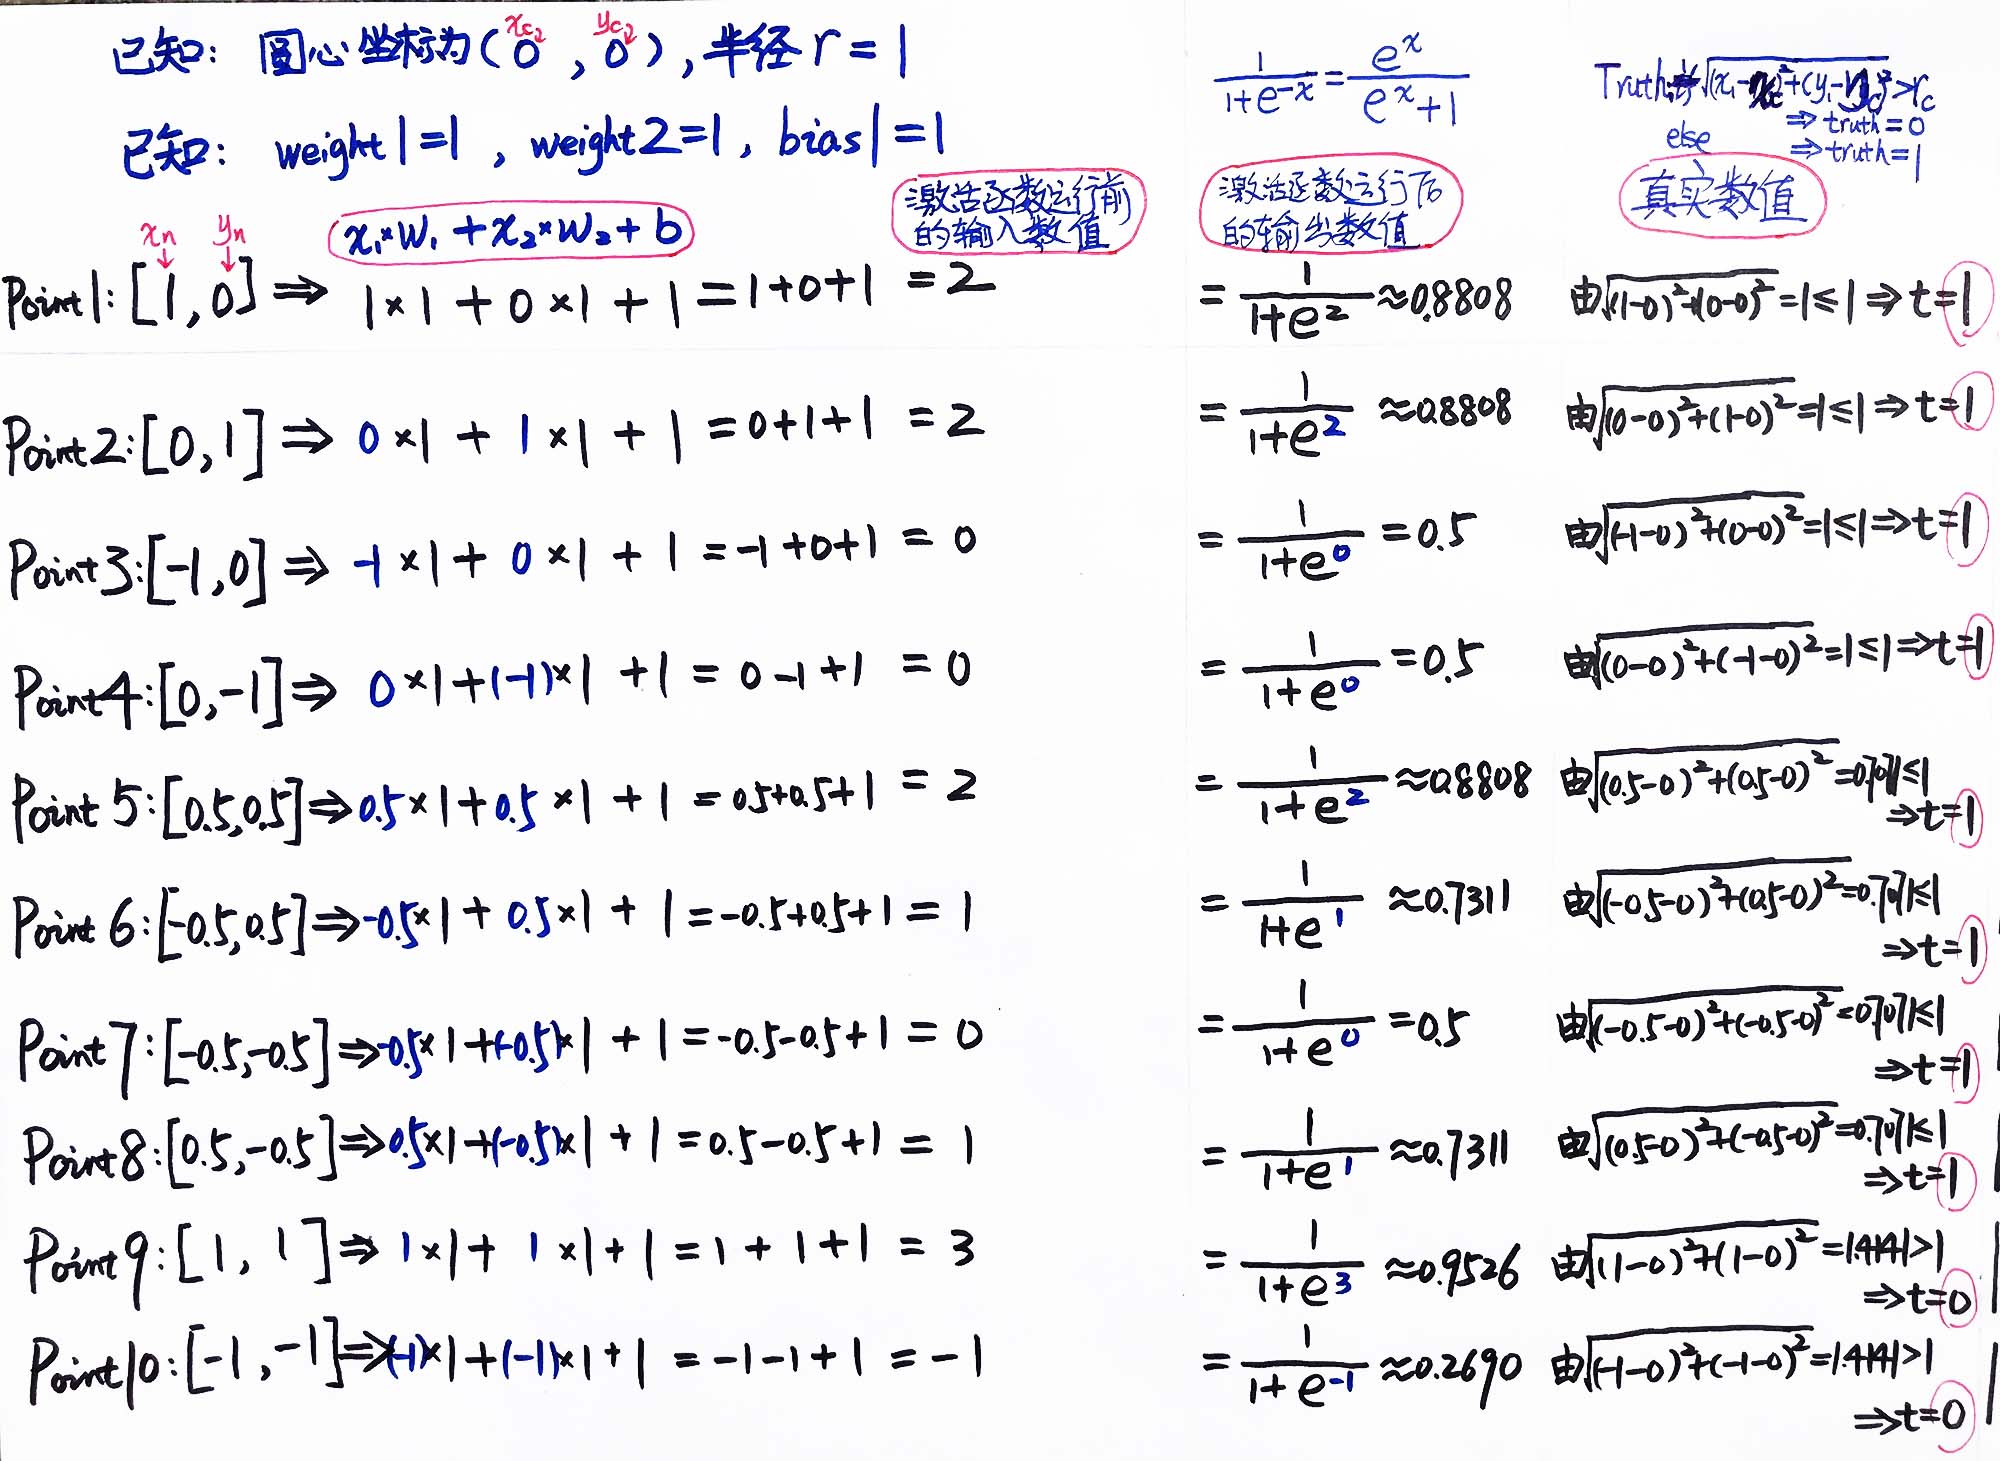 已知: 圆心坐标为(0, 0), 半径 r = 1
xc₂ yc₂
已知: weight1=1, weight2=1, bias1=1
1/(1+e^-x) = e^x/(e^x+1)
√(x₁-xc)²+(y₁-yc)²>rc
⇒ truth=0
else ⇒ truth=1
xn yn
x₁*w₁+x₂*w₂+b
激活函数运行前
的输入数值
激活函数运行后
的输出数值
真实数值
Point1: [1,0] ⇒ 1×1 + 0×1 + 1 = 1+0+1 = 2 = 1/(1+e^2) ≈0.8808 由√(1-0)²+(0-0)²=1≤1⇒t=1
Point2:[0,1] ⇒ 0×1 + 1×1 + 1 = 0+1+1 = 2 = 1/(1+e^2) ≈0.8808 由√(0-0)²+(1-0)²=1≤1⇒t=1
Point3:[-1,0] ⇒ -1×1+ 0×1 + 1 = -1+0+1 = 0 = 1/(1+e^0) =0.5 由√(-1-0)²+(0-0)²=1≤1⇒t=1
Point4:[0,-1]⇒ 0×1+(-1)×1 +1 = 0-1+1 = 0 = 1/(1+e^0) =0.5 由√(0-0)²+(-1-0)²=1≤1⇒t=1
Point 5:[0.5,0.5]⇒0.5×1+0.5×1 + 1 = 0.5+0.5+1 = 2 = 1/(1+e^2) ≈0.8808 由√(0.5-0)²+(0.5-0)²=0.7071≤1
⇒t=1
Point 6:[-0.5,0.5]⇒-0.5×1 + 0.5×1 + 1 = -0.5+0.5+1 = 1 = 1/(1+e^1) ≈0.7311 由√(-0.5-0)²+(0.5-0)²=0.7071≤1
⇒t=1
Point 7:[-0.5,-0.5]⇒-0.5×1+(-0.5)×1 + 1 = -0.5-0.5+1 = 0 = 1/(1+e^0) =0.5 由√(-0.5-0)²+(-0.5-0)²=0.7071≤1
⇒t=1
Point8:[0.5,-0.5]⇒0.5×1+(-0.5)×1 + 1 = 0.5-0.5+1 = 1 = 1/(1+e^1) ≈0.7311 由√(0.5-0)²+(-0.5-0)²=0.7071≤1
⇒t=1
Point9:[1, 1]⇒ 1×1+ 1×1+1 = 1+1+1 = 3 = 1/(1+e^3) ≈0.9526 由√(1-0)²+(1-0)²=1.4141>1
⇒t=0
Point10:[-1,-1]⇒(-1)×1+(-1)×1+1 = -1-1+1 = -1 = 1/(1+e^-1) ≈0.2690 由√(-1-0)²+(-1-0)²=1.4141>1
⇒t=0